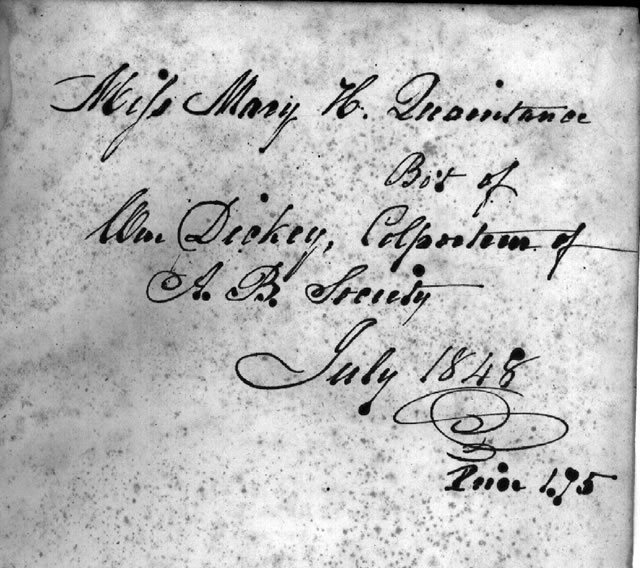 Miss Mary H. Quaintance
Bot of
Wm Dickey, Colporteur of
A. B. Society
July 1848
Price 1.75